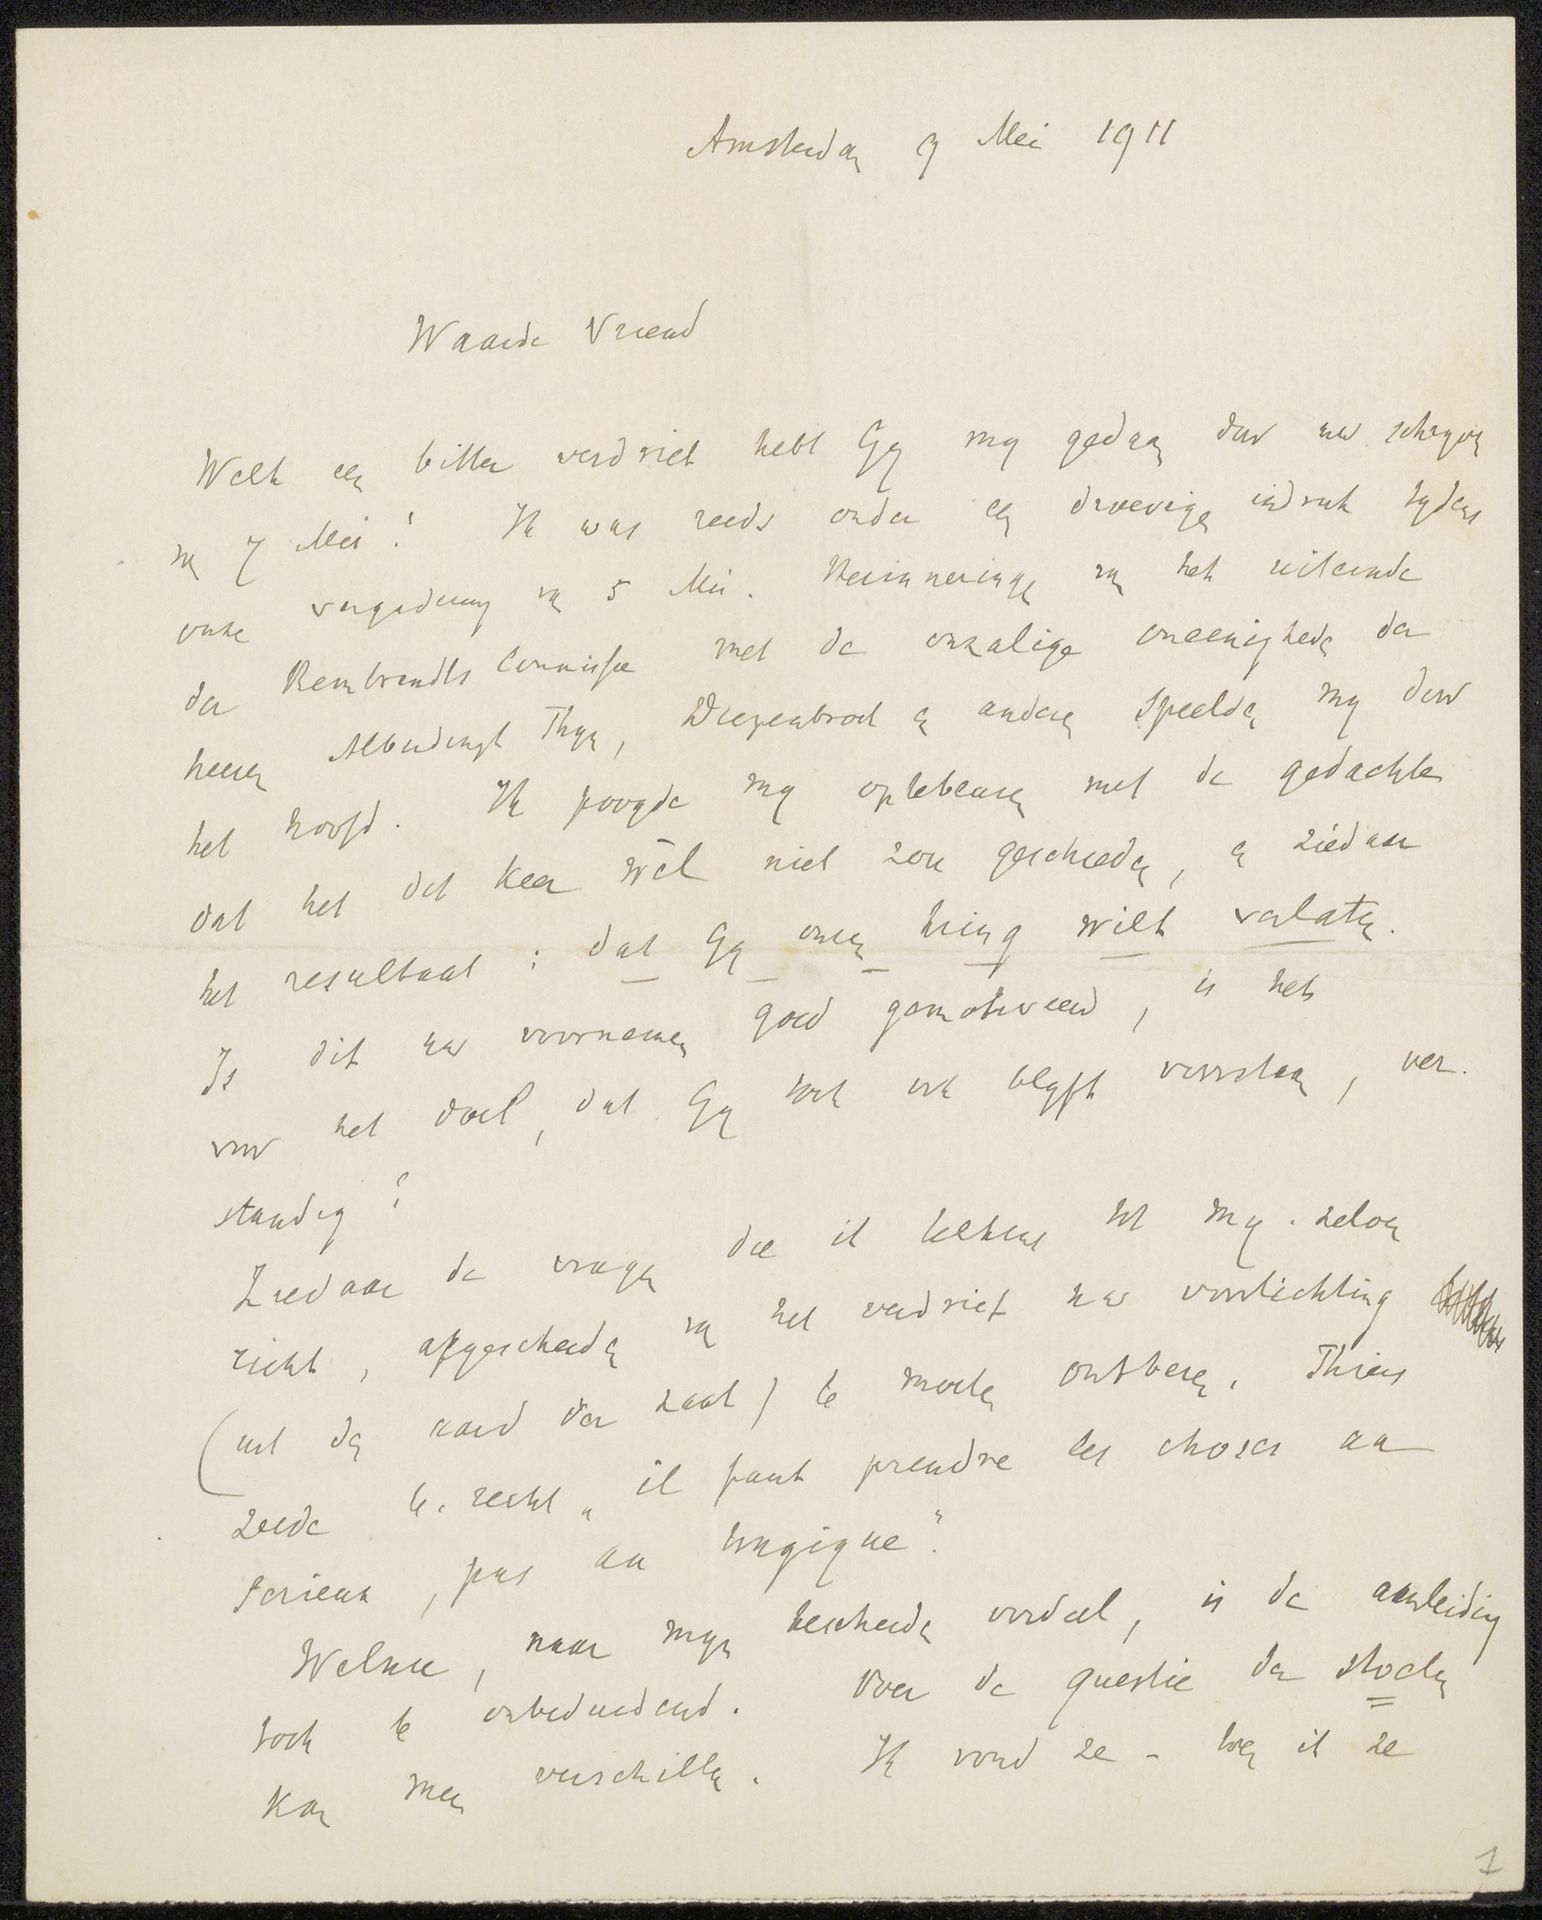 Amsterdam 9 Mei 1911
Waarde Vriend
Welk een bitter verdriet hebt Gy my gedaan door uw schryven
van 7 Mei! Ik was reeds onder een droevigen indruk tydens
onze vergadering van 5 Mei. Herinneringen van het uiteinde
der Rembrandts Commissie met de onzalige oneenigheden der
heeren Alberdingk Thym, Diepenbrock en anderen speelden my door
het hoofd. Ik poogde my op te beuren met de gedachte
dat het dit keer wèl niet zou geschieden, en ziedaar
het resultaat: dat Gy onzen kring wilt verlaten.
Is dit uw voornemen goed gemotiveerd, is het
voor het doel, dat Gy toch ook blyft voorstaan, ver-
standig?
Ziedaar de vragen die ik telkens tot my-zelven
richt, afgescheiden van het verdriet uw voorlichting
(uit den aard der zaak) te moeten ontberen. Thiers
zeide te-recht "il faut prendre les choses au
serieux, pas au tragique".
Welnu, naar myn bescheiden oordeel, is de aanleiding
toch te onbeduidend. Over de questie der stoelen
kan men verschillen. Ik vond ze - toen ik ze
1